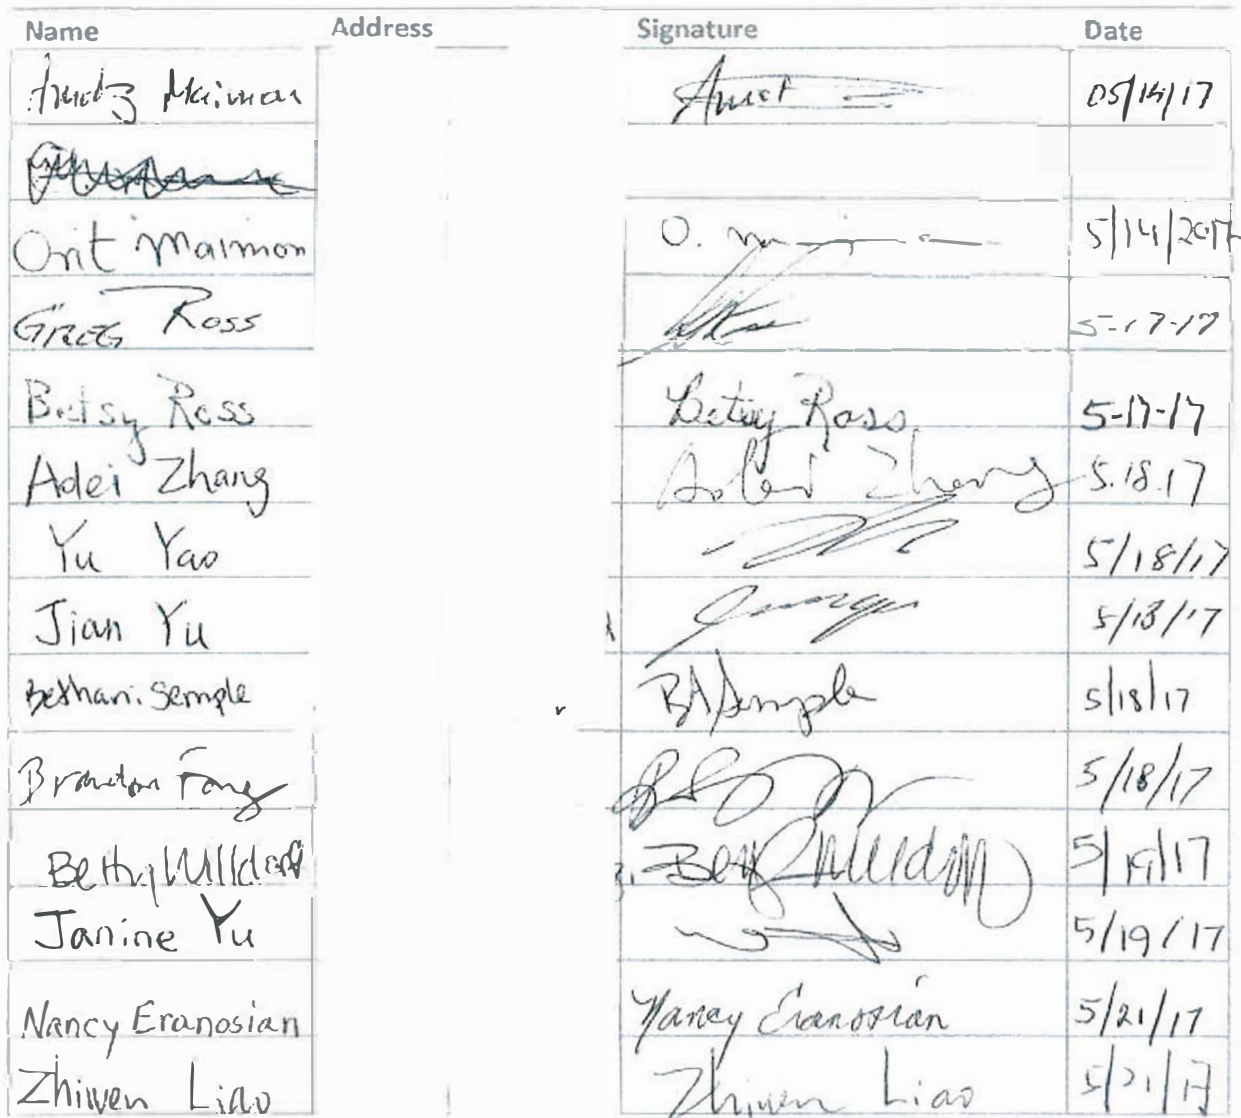 Name Address Signature Date
Maimon Amit 05/14/17
Orit Maimon O. 5/14/2017
Greg Ross 5-17-17
Betsy Ross Betsy Ross 5-17-17
Adei Zhang Adei Zhang 5.18.17
Yu Yao 5/18/17
Jian Yu 5/18/17
Bethani Semple BA Semple 5/18/17
Brandon Fong 5/18/17
Betty 5/19/17
Janine Yu 5/19/17
Nancy Eranosian Nancy Eranosian 5/21/17
Zhiwen Liao Zhiwen Liao 5/21/17